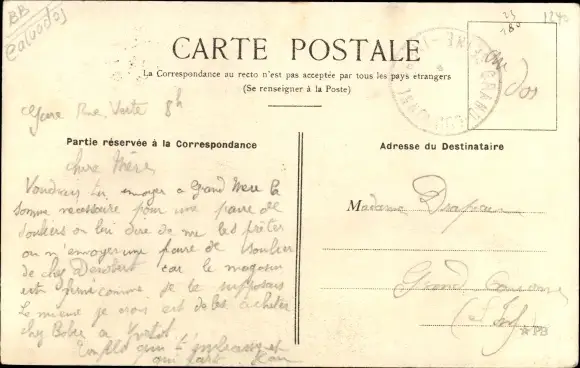 BB
Calvados
23
280
1240
CARTE POSTALE
La Correspondance au recto n'est pas acceptée par tous les pays étrangers
(Se renseigner à la Poste)
Gare Rue Verte 8h
Partie réservée à la Correspondance
Adresse du Destinataire
au
dos
chère Mère
Voudrais tu envoyer a Grand Mère la
somme nécessaire pour une paire de
souliers ou lui dire de me les prêter
ou m'envoyer une paire de soulier
de chez car le magasin
est fermé comme je le supposais
Le mieux je crois est de les acheter
chez a Yvetot
Ton fils qui t'embrasse et
qui part
Madame
Grand
★ PB